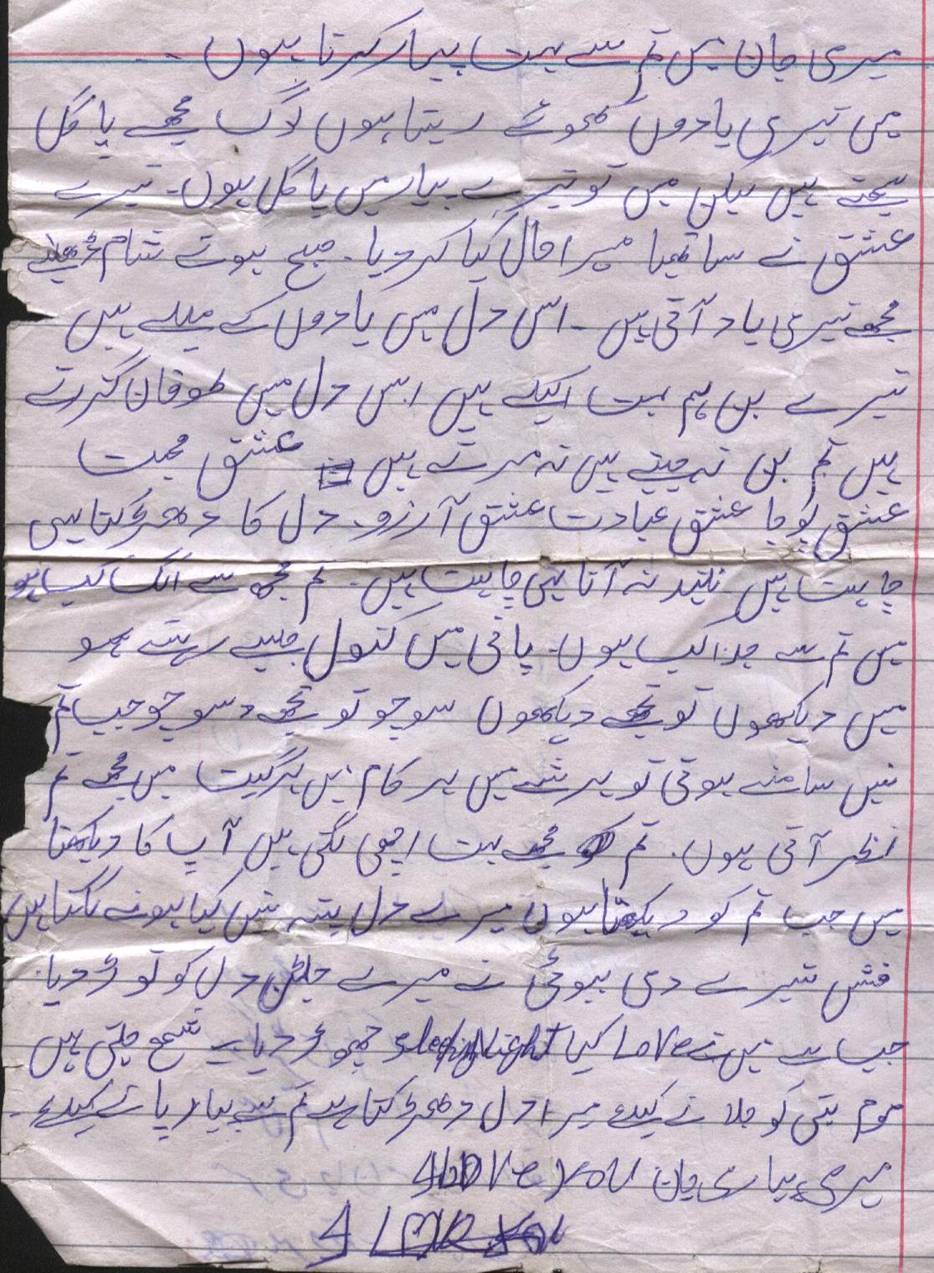 میری جان میں تم سے بہت پیار کرتا ہوں ۔۔
میں تیری یادوں کھوئے رہتا ہوں لوگ مجھے پاگل
سمجتے ہیں لیکن میں تو تیرے پیار میں پاگل ہوں۔ تیرے
عشق نے ساتھیا میرا حال کیا کر دیا۔ صبح ہوتے شام ڈھلے
مجھے تیری یاد آتی ہیں ۔ اس دل میں یادوں کے میلے ہیں
تیرے بن ہم بہت اکیلے ہیں اس دل میں طوفان گزرتے
ہیں تم بن نہ جیتے ہیں نہ مرتے ہیں عشق محبت
عشق پوجا عشق عبادت عشق آرزو۔ دل کا دھڑکتا ہی
چاہت ہیں نیند نہ آنا بھی چاہت ہیں۔ تم مجھ سے الگ کب ہو
میں تم سے جدا کب ہوں۔ پانی میں کنول جیسے رہتے ہو
میں دیکھوں تو تجھے دیکھوں سوچو تو تجھے سوچو جب تم
نہیں سامنے ہوتی تو ہر شے میں ہر کام میں ہر گیت میں مجھے تم
نظر آتی ہوں۔ تم مجھے بہت اچھی لگتی ہیں آپ کا دیکھنا
میں جب تم کو دیکھتا ہوں میرے دل پتہ نہیں کیا ہونے لگتا ہیں
تیرے دی بیوفئی نے میرے دل کو توڑ دیا۔
جب سے میں نے Love کیا Night چھوڑ دیا ۔ شمع جلتی ہیں
موم بتی کو جلانے کیلئے میرا دل دھڑکتا ہے تم سے پیار پانے کیلئے ۔
میری پیاری جان I LOVE YOU
I LOVE You